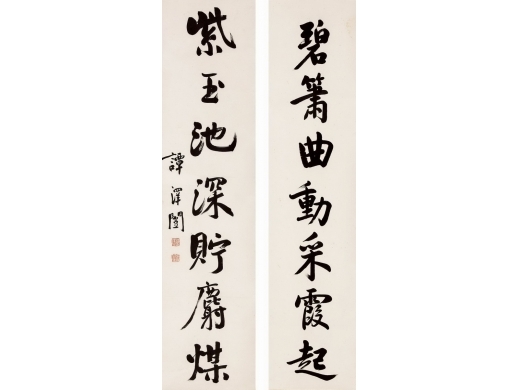 碧簫曲動采霞起
紫玉池深貯麝煤
譚澤闓